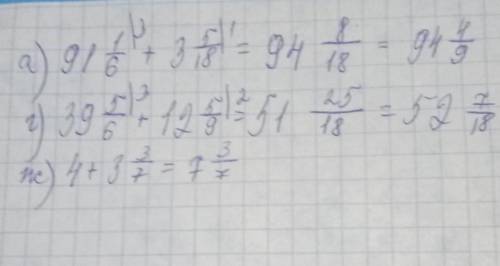 а) 91 1/6 \3 + 3 5/18 \1 = 94 8/18 = 94 4/9
г) 39 5/6 \3 + 12 5/9 \2 = 51 25/18 = 52 7/18
ж) 4 + 3 3/7 = 7 3/7